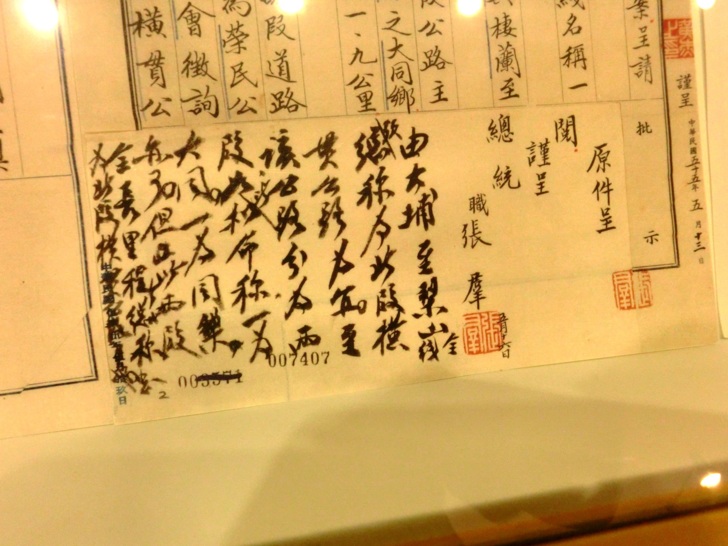 案呈請
線名稱一
棲蘭至
段公路主
之大同鄉
一·九公里
段道路
為榮民公
會徵詢
橫貫公
謹呈
中華民國五十五年五月十三日
批示
原件呈
閱
謹呈
總統
職張羣
由大埔至梨山全線
總稱為北段橫
貫公路為宜至
該公路分為兩
段如擬命稱一為
大同一為同樂
亦可但此兩段
全長里程從稱
為北段橫
007407
003571
2
玖日